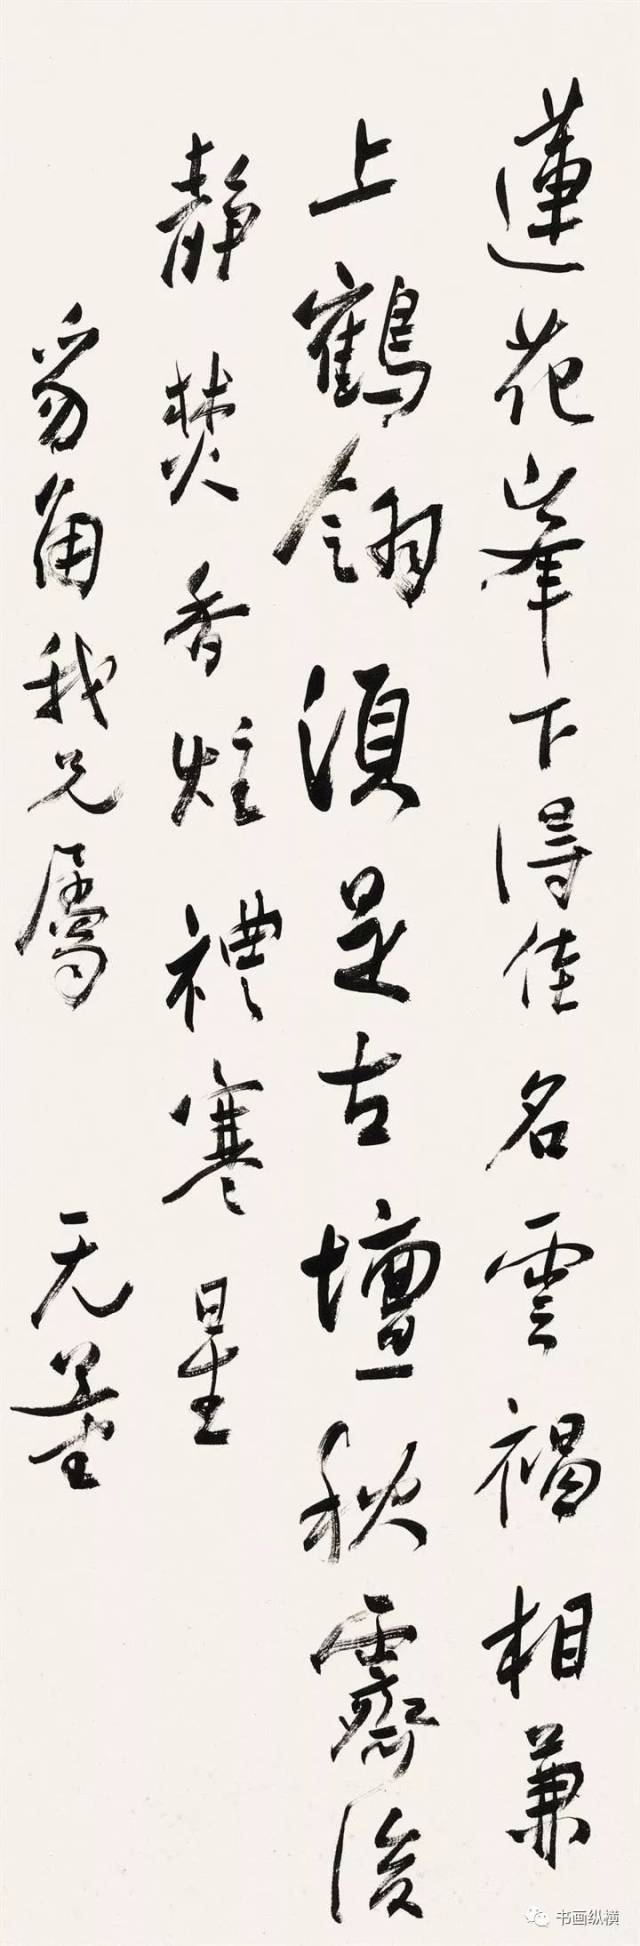 蓮花峯下得佳名雲褐相兼
上鶴翎須是古壇秋霽後
靜焚香炷禮寒星
芻角我兄屬 无量
书画纵横